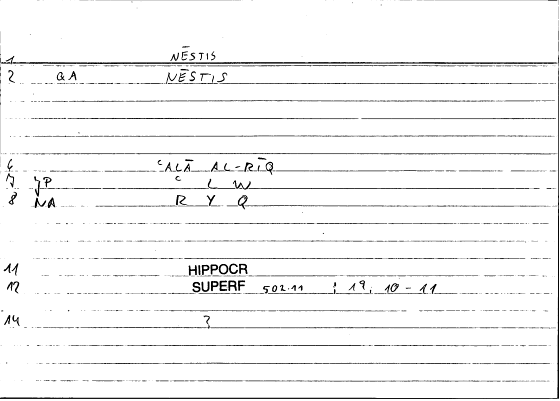 1 NĒSTIS
2 QA NĒSTIS
6 ʿALĀ AL-RĪQ
7 ʿ L W
8 NA R Y Q
11 HIPPOCR
12 SUPERF 502.11 : 19, 10-11
14 ?